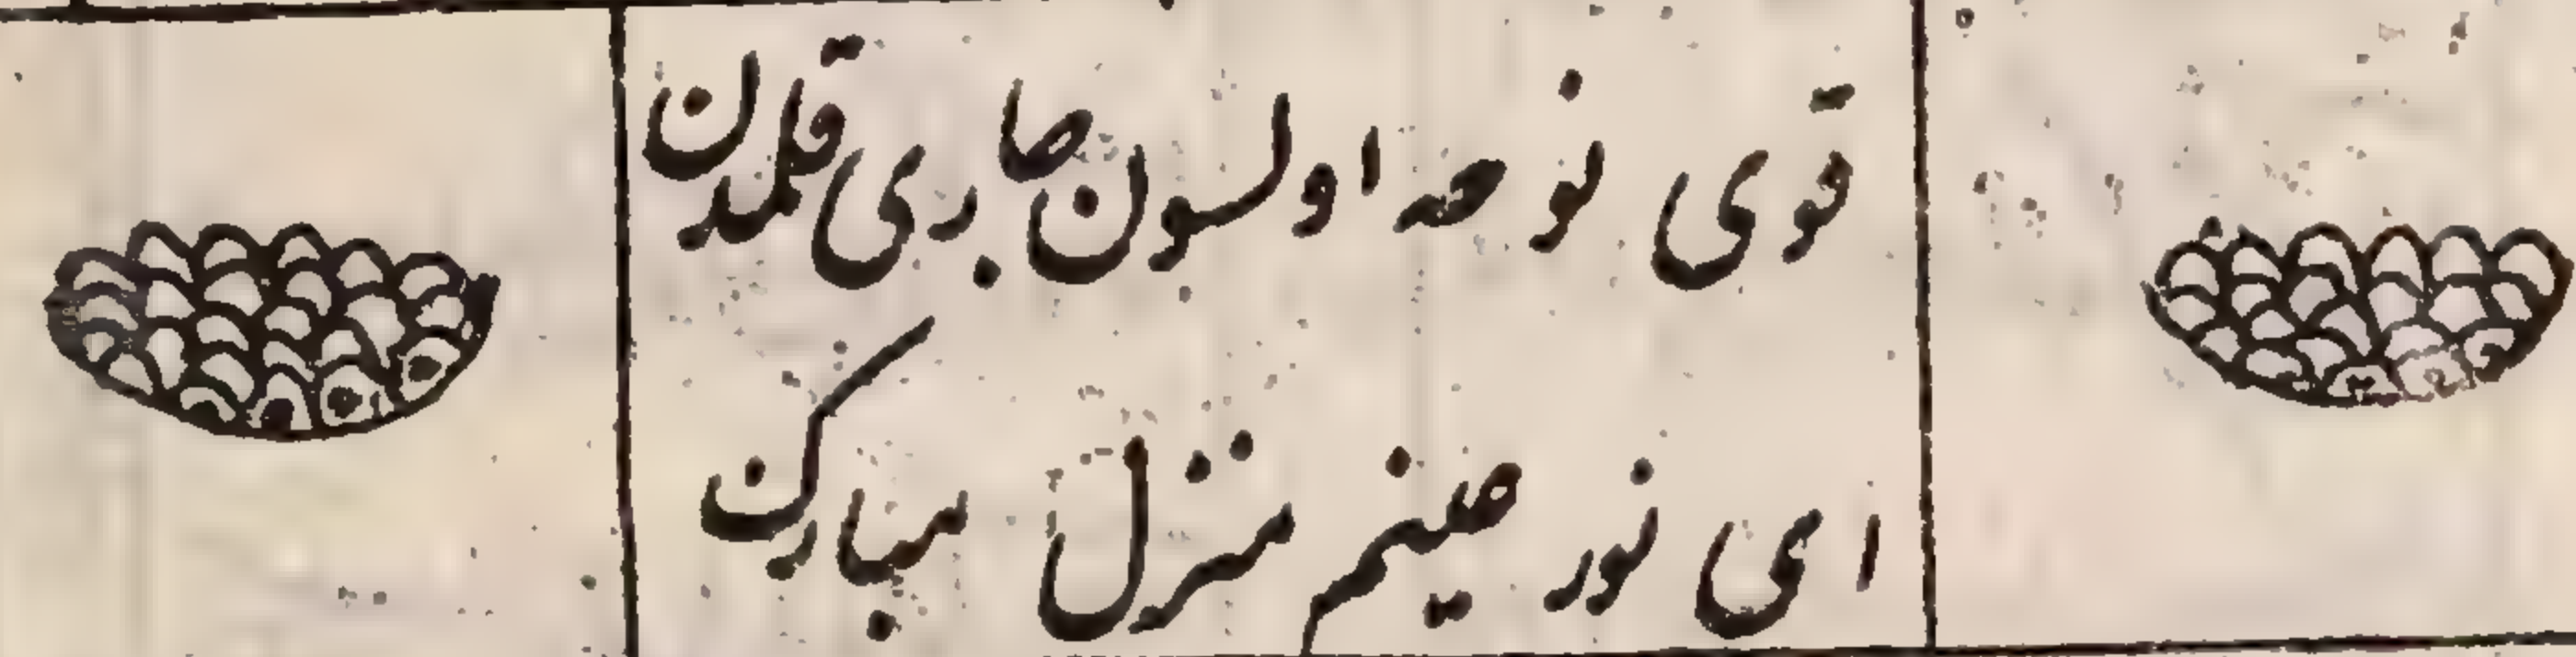 قوی نوحه اولسون جاری قلمدن
ای نور عینم منزل مبارک